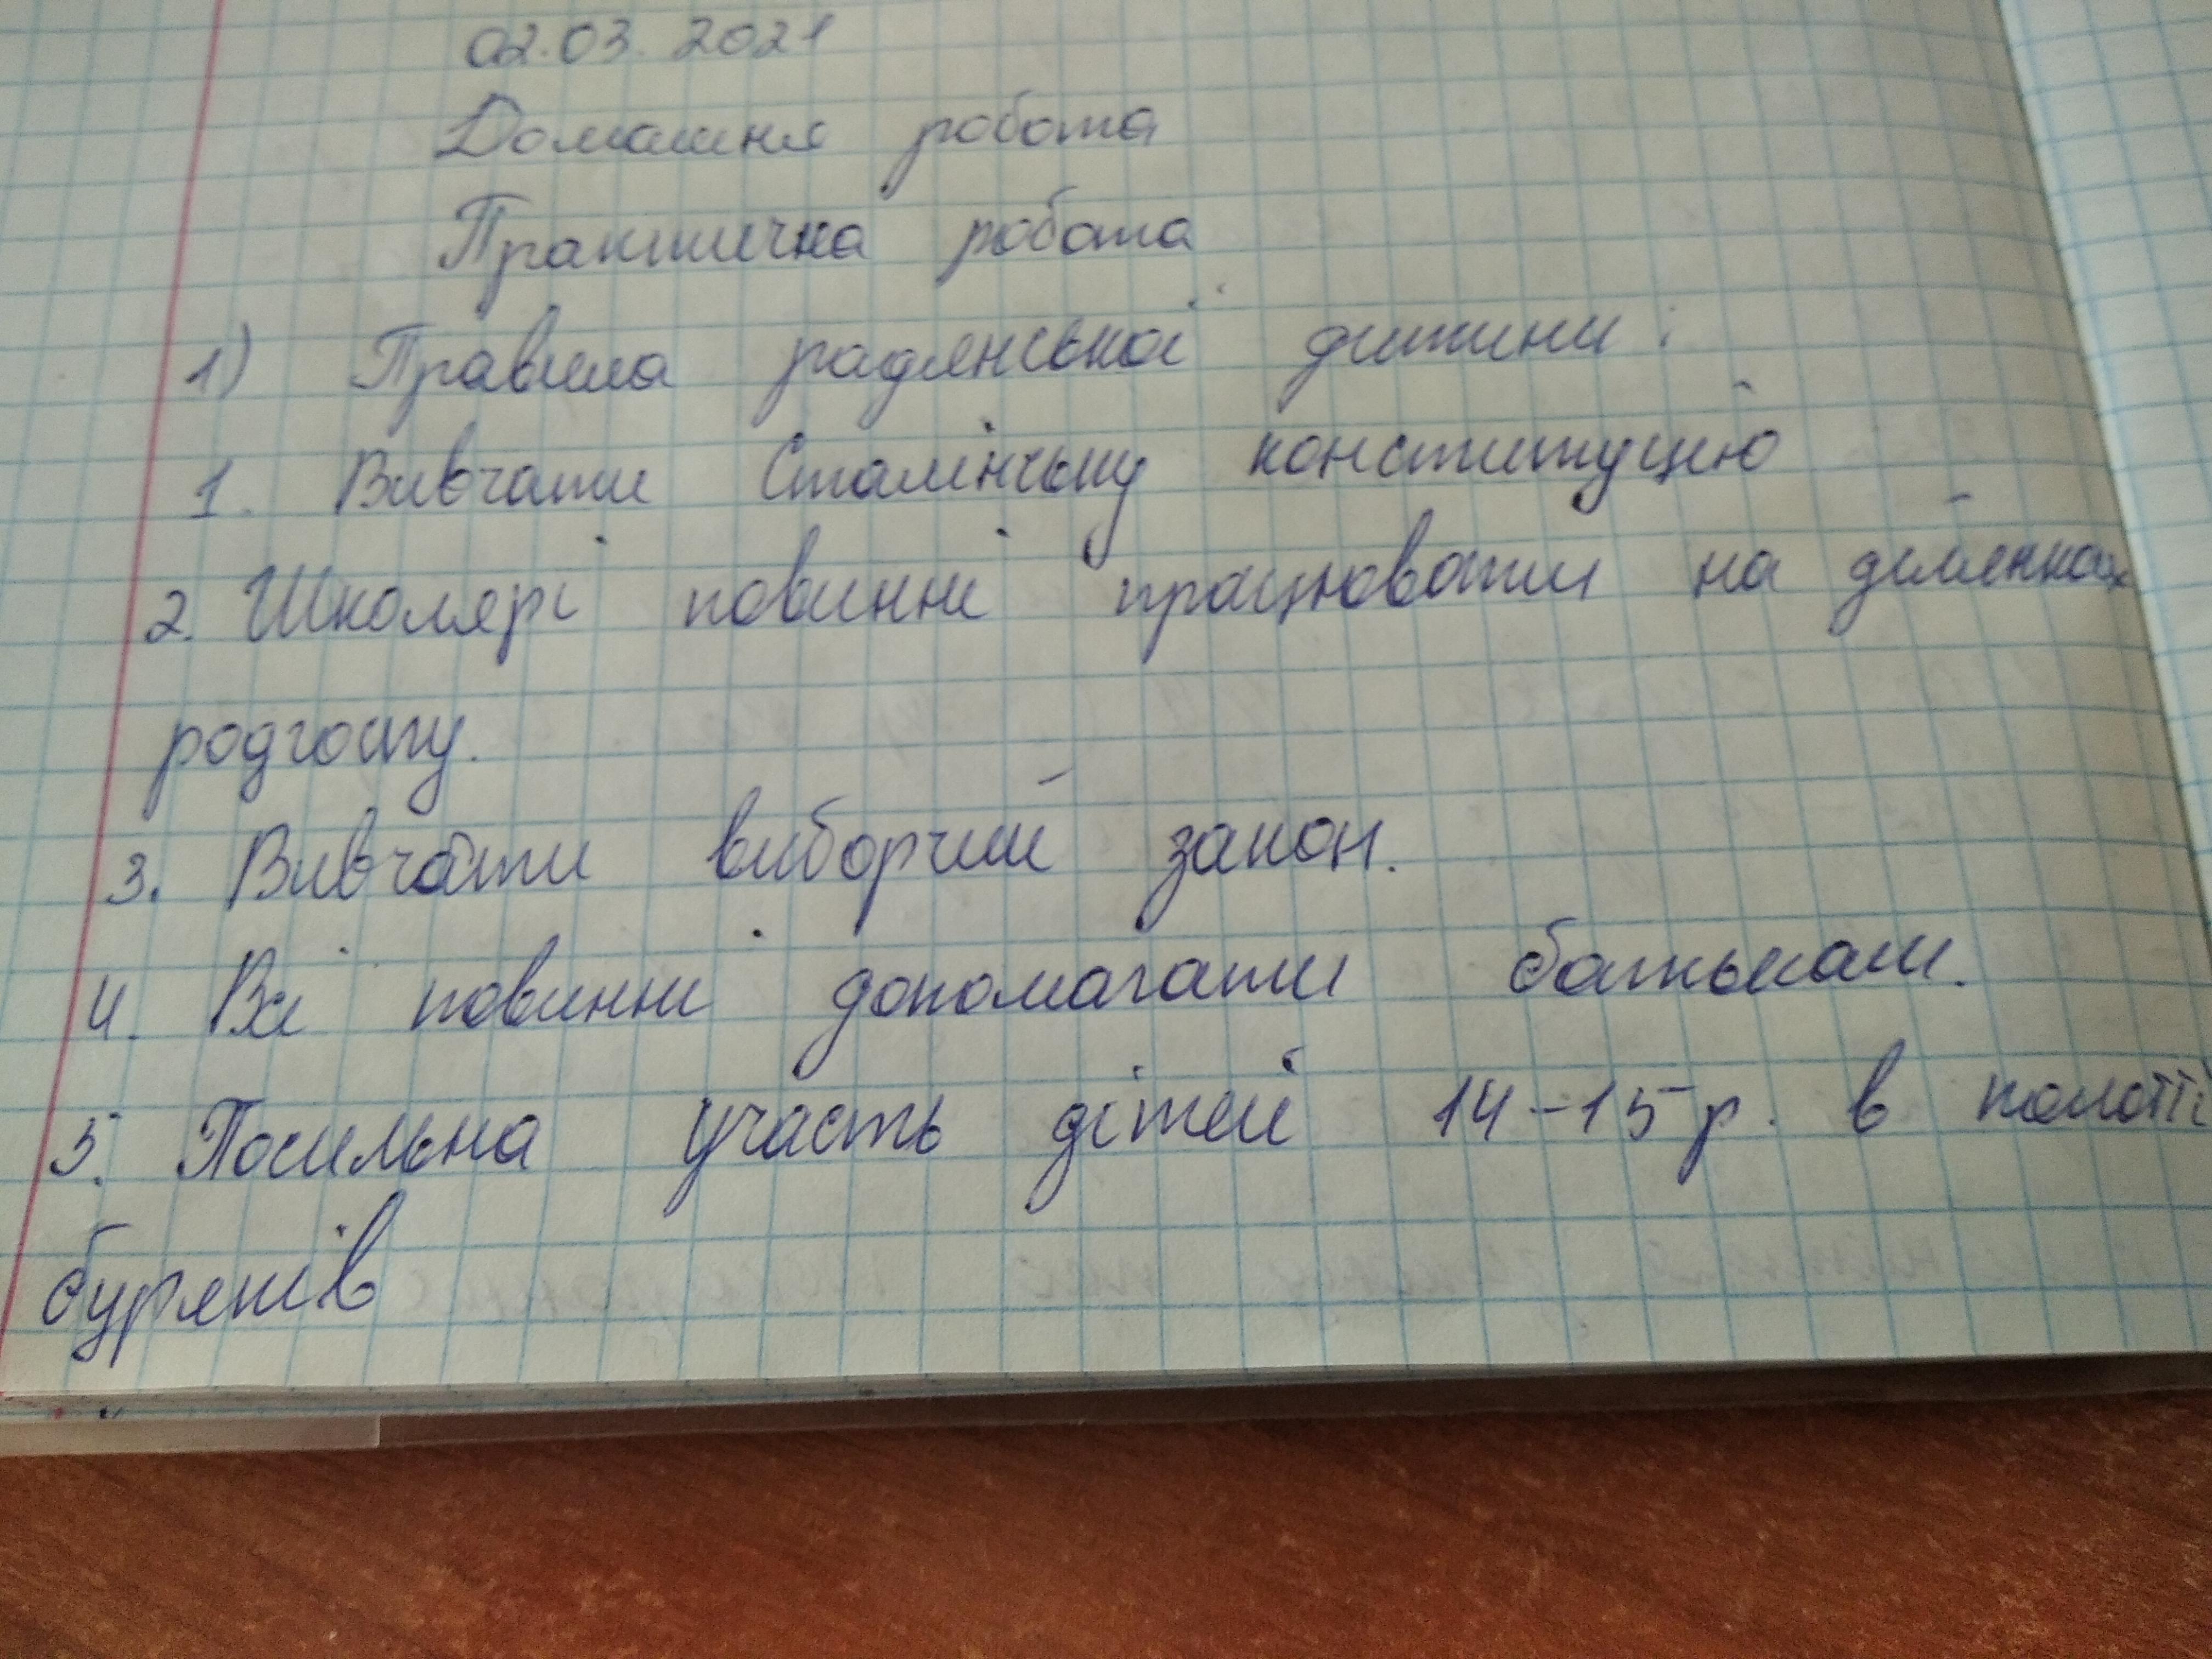 02.03.2021
Домашня робота
Практична робота
1) Правила радянської дитини:
1. Вивчати Сталінську конституцію
2. Школярі повинні працювати на ділянках
радгоспу.
3. Вивчати виборчий закон.
4. Всі повинні допомагати батькам.
5. Посильна участь дітей 14-15 р. в полотті
бурянів